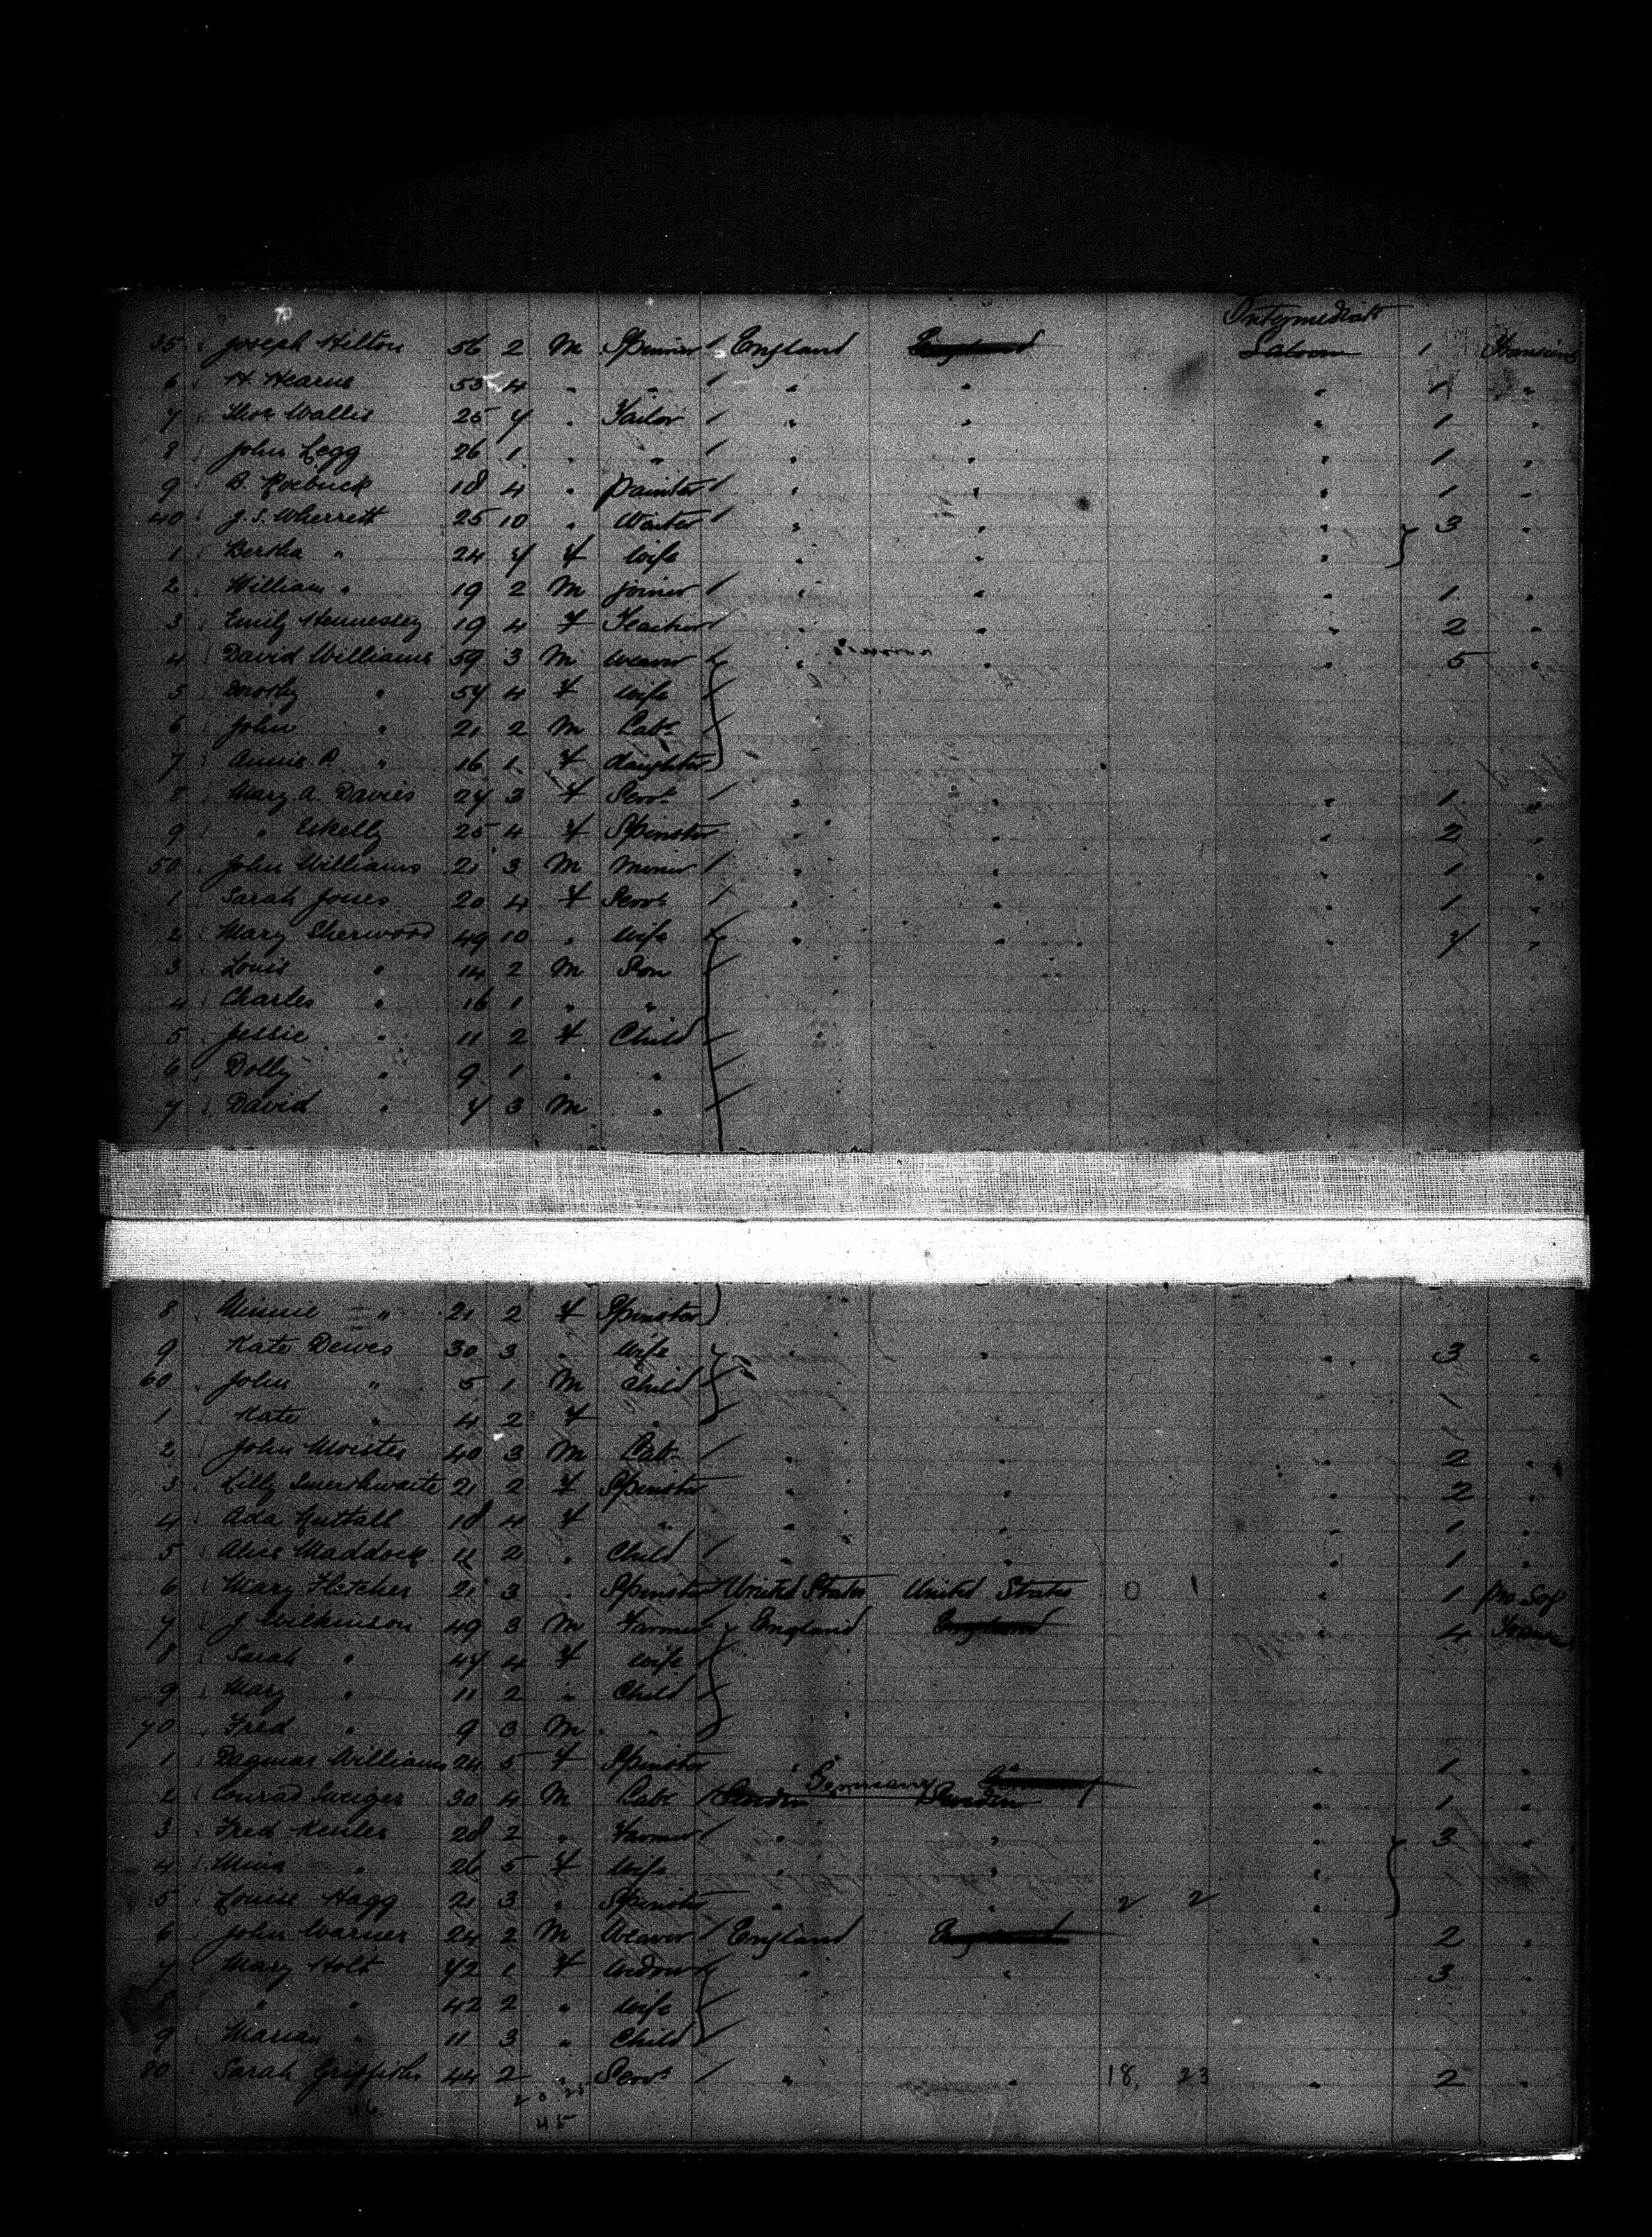 Intermediate
35 Joseph Hilton 56 2 M Spinner England England Saloon 1 Transient
6 H. Hearne 55 4 " " " " " 1 "
7 Thos Wallis 25 7 " Tailor " " " 1 "
8 John Legg 26 1 " " " " " 1 "
9 B. Roebuck 18 4 " Painter " " " 1 "
40 J. S. Wherrett 25 10 " Waiter " " " 3 "
1 Bertha " 24 7 F Wife " " "
2 William " 19 2 M Joiner " " " 1 "
3 Emily Hennessey 19 4 F Teacher " " " 2 "
4 David Williams 59 3 M Weaver " " " 5 "
5 Dorothy " 57 4 F Wife
6 John " 21 2 M Labr
7 Annie R " 16 1 F daughter
8 Mary A. Davies 27 3 F Servt " " " 1 "
9 " Eskelly 25 4 F Spinster " " " 2 "
50 John Williams 21 3 M Miner " " " 1 "
1 Sarah Jones 20 4 F Servt " " " 1 "
2 Mary Sherwood 49 10 " Wife " " 7 "
3 Louis " 14 2 M Son
4 Charles " 16 1 " "
5 Jessie " 11 2 F Child
6 Dolly " 9 1 " "
7 David " 7 3 M "
8 Minnie " 21 2 F Spinster
9 Kate Dewes 30 3 " Wife " " " 3 "
60 John " 5 1 M Child
1 Kate " 4 2 F "
2 John Moister 40 3 M Labr " " " 2 "
3 Lilly Smerthwaite 21 2 F Spinster " " " 2 "
4 Ada Nuttall 18 4 F " " " " 1 "
5 Alice Maddock 11 2 " Child " " " 1 "
6 Mary Fletcher 21 3 " Spinster United States United States 0 1 " 1 Pro Soj
7 J Wilkinson 49 3 M Farmer England England " 4 Transient
8 Sarah " 47 4 F Wife
9 Mary " 11 2 " Child
70 Fred " 9 3 M "
1 Dagmar Williams 24 5 F Spinster " " " 1 "
Germany
2 Conrad Sweiger 30 4 M Labr Sweden Sweden " 1 "
3 Fred Kesler 28 2 " Farmer " " " 3 "
4 Mina " 26 5 F Wife " " "
5 Louise Hagg 21 3 " Spinster " " 2 2 "
6 John Warner 24 2 M Weaver England England " 2 "
7 Mary Holt 72 1 F Widow " " " 3 "
8 " " 42 2 " Wife
9 Marian " 11 3 " Child
80 Sarah Griffiths 44 2 " Servt " " 18 23 " 2 "
20 25
46 45